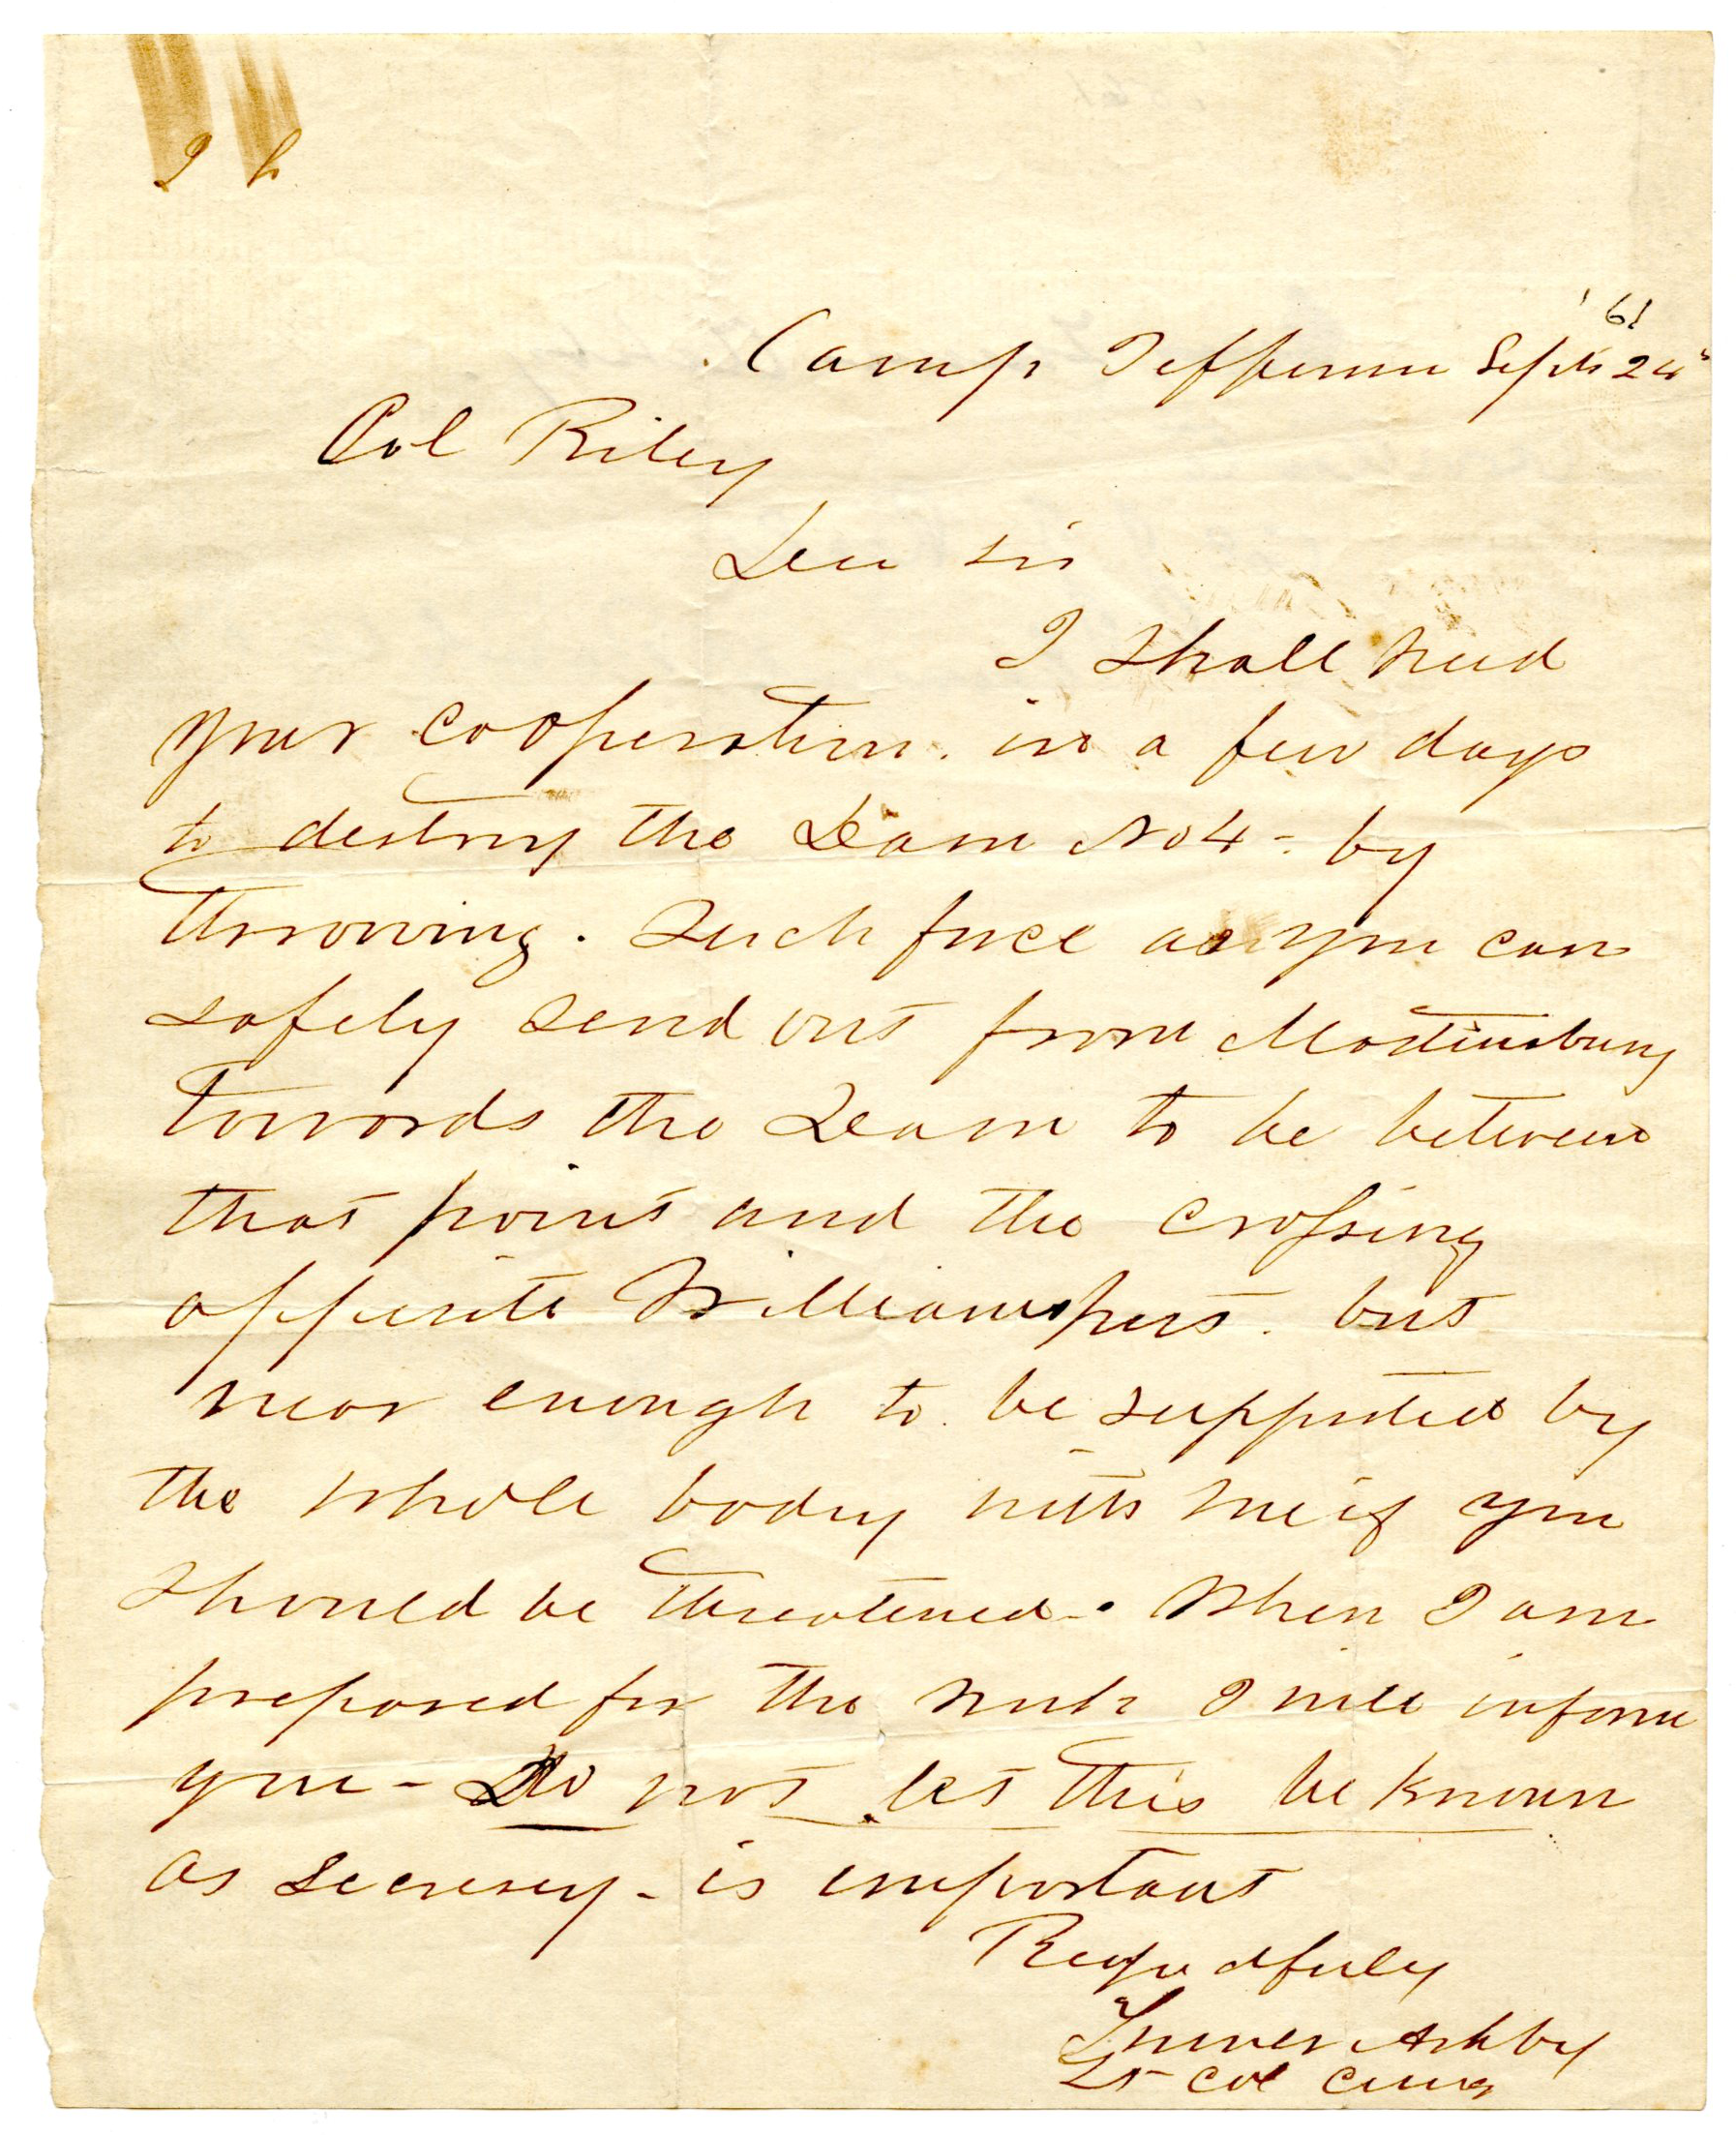 '61
Camp Jefferson Septr 24th
Col Riley
Dear sir
I shall need
your cooperation. in a few days
to destroy the Dam No 4 - by
throwing. Such force as you can
safely send out from Martinsburg
towards the Dam to be between
that point and the crossing
opposite Williamsport. but
near enough to be supported by
the whole body with me if you
should be threatened -. When I am
prepared for the work I will inform
you - Do not let this be known
as secresey - is important
Respectfuly
Turner Ashby
Lt Col Cmg